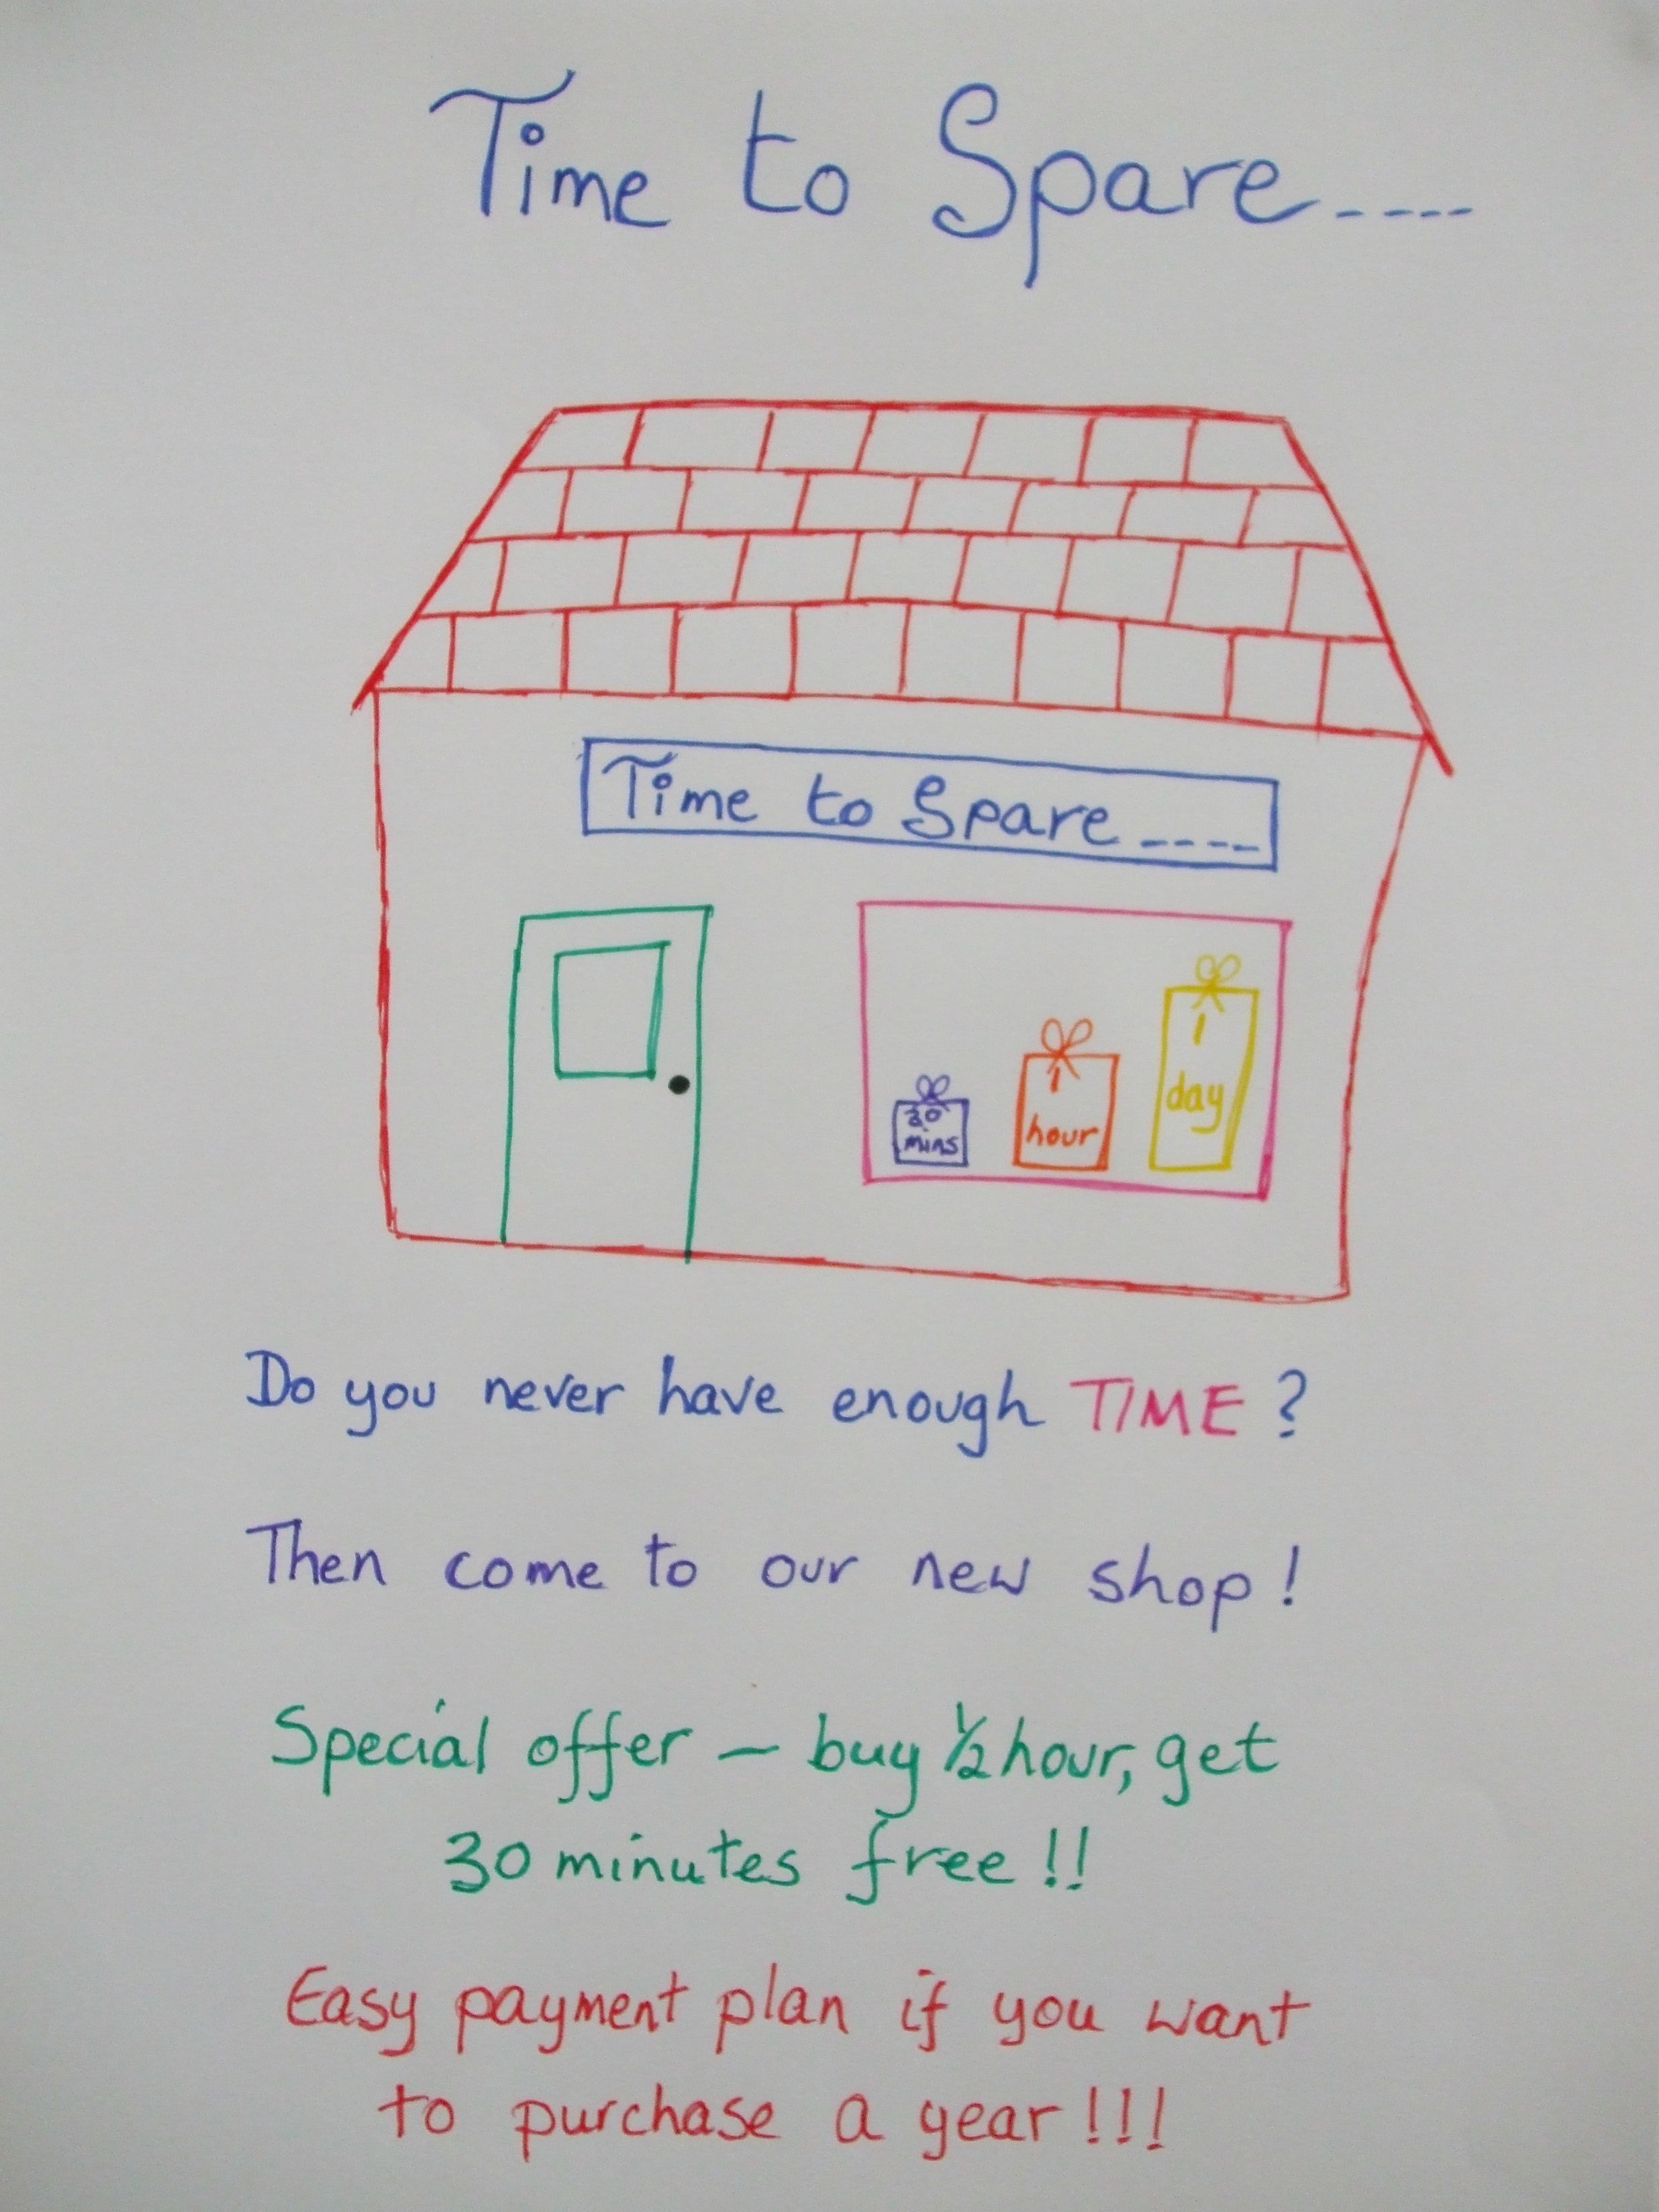 Time to Spare----
Time to Spare----
30
mins
1
hour
1
day
Do you never have enough TIME?
Then come to our new shop!
Special offer – buy ½ hour, get
30 minutes free!!
Easy payment plan if you want
to purchase a year!!!